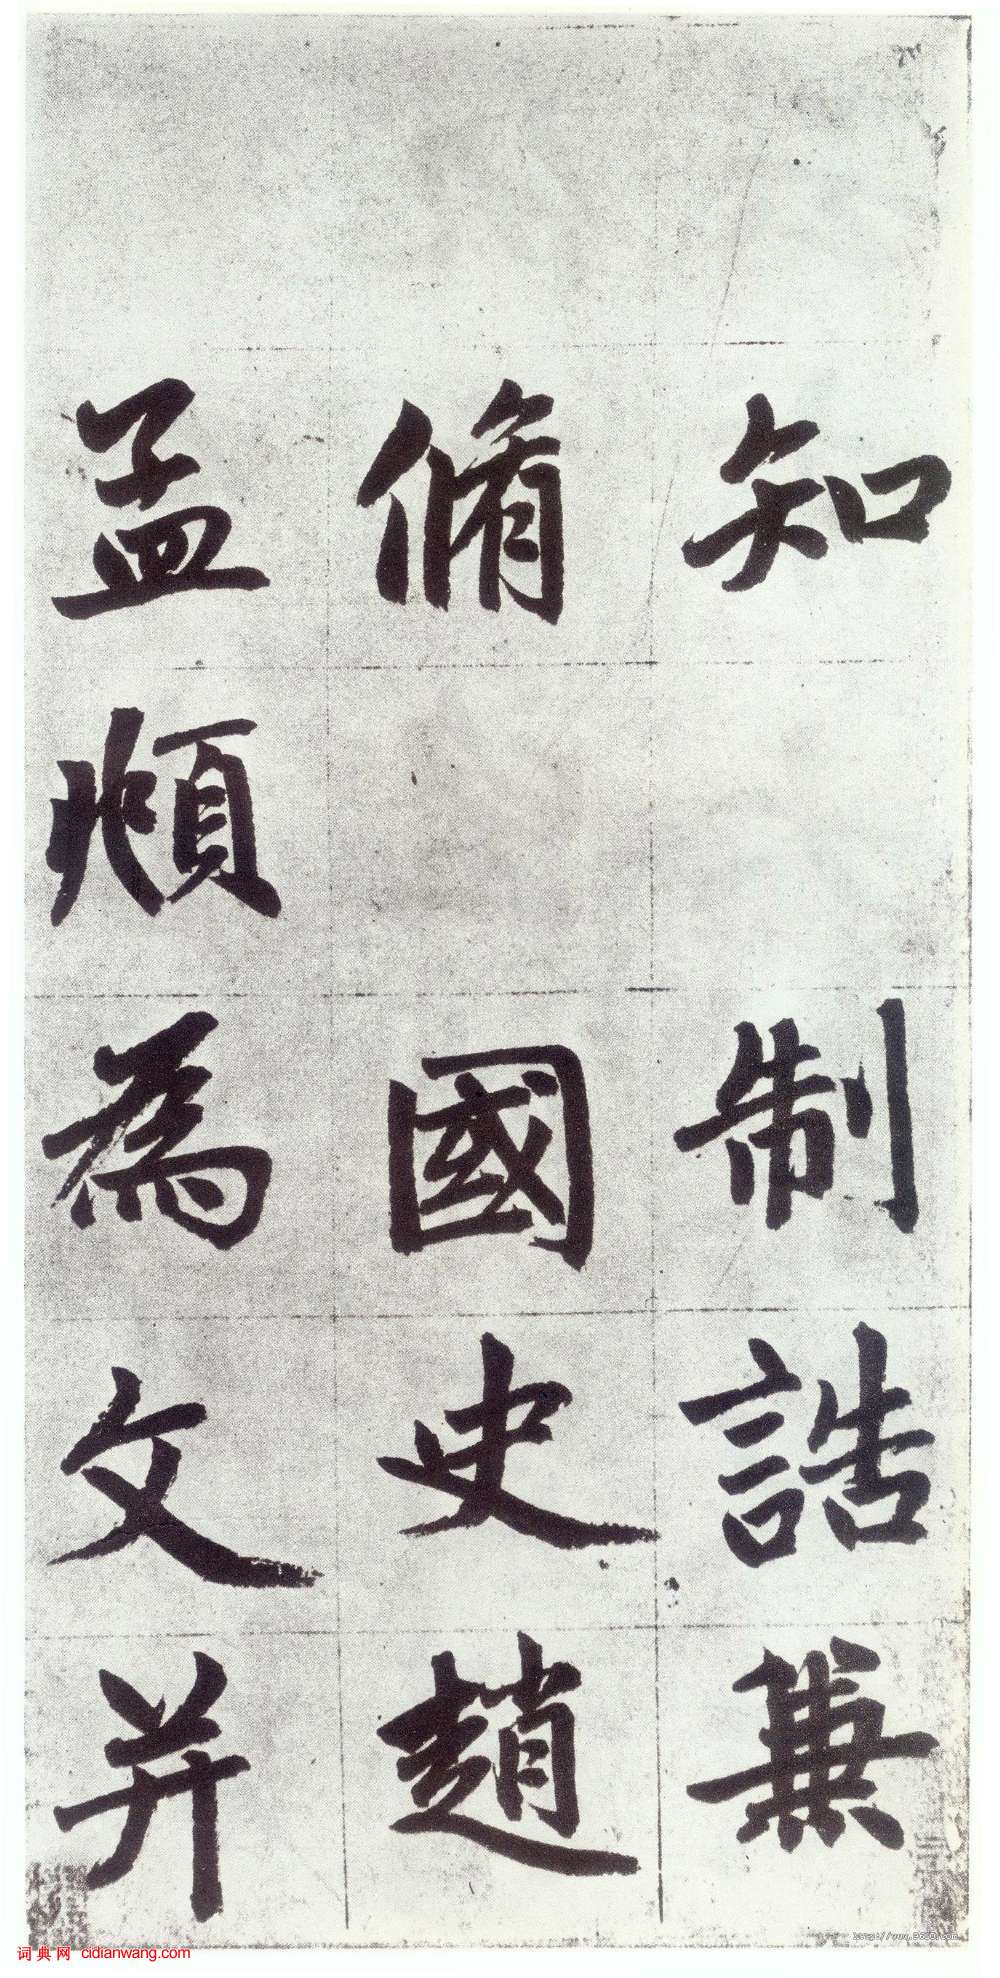 知　制誥兼
脩　國史趙
孟頫為文并
词典网 cidianwang.com